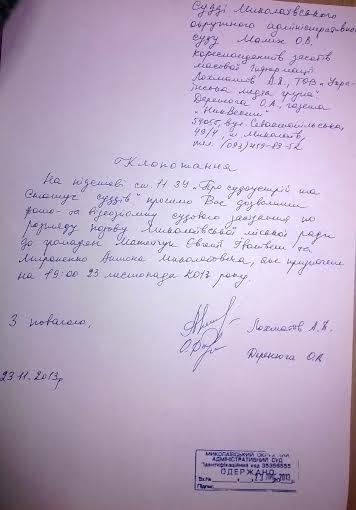 Судді Миколаївського
окружного адміністративного
суду Мамік О.В.
кореспондентів засобів
масової інформації
Лохматов А.В., ТОВ "Укра-
їнська медіа група"
Деренюга О.А., газета
"НикВести"
54055, вул. Севастопільська,
м. Миколаїв,
тел.
Клопотання
На підставі ст. 11 ЗУ "Про судоустрій та
статус суддів" просимо Вас дозволити
фото- та відеозйомку судового засідання по
розгляду позову Миколаївської міської ради
до громадян Матвійчук Євгенії Іванівни та
Мироненко Антона Миколайовича, яке призначене
на 19:00 23 листопада 2013 року.
З повагою,
Лохматов А.В.
Деренюга О.А.
23.11.2013р
МИКОЛАЇВСЬКИЙ ОКРУЖНИЙ
АДМІНІСТРАТИВНИЙ СУД
Ідентифікаційний код 35356555
ОДЕРЖАНО
Вх.№
Підпис